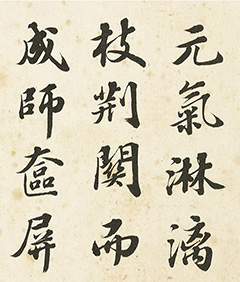 元氣淋漓
枝荆關而
成師奩屏